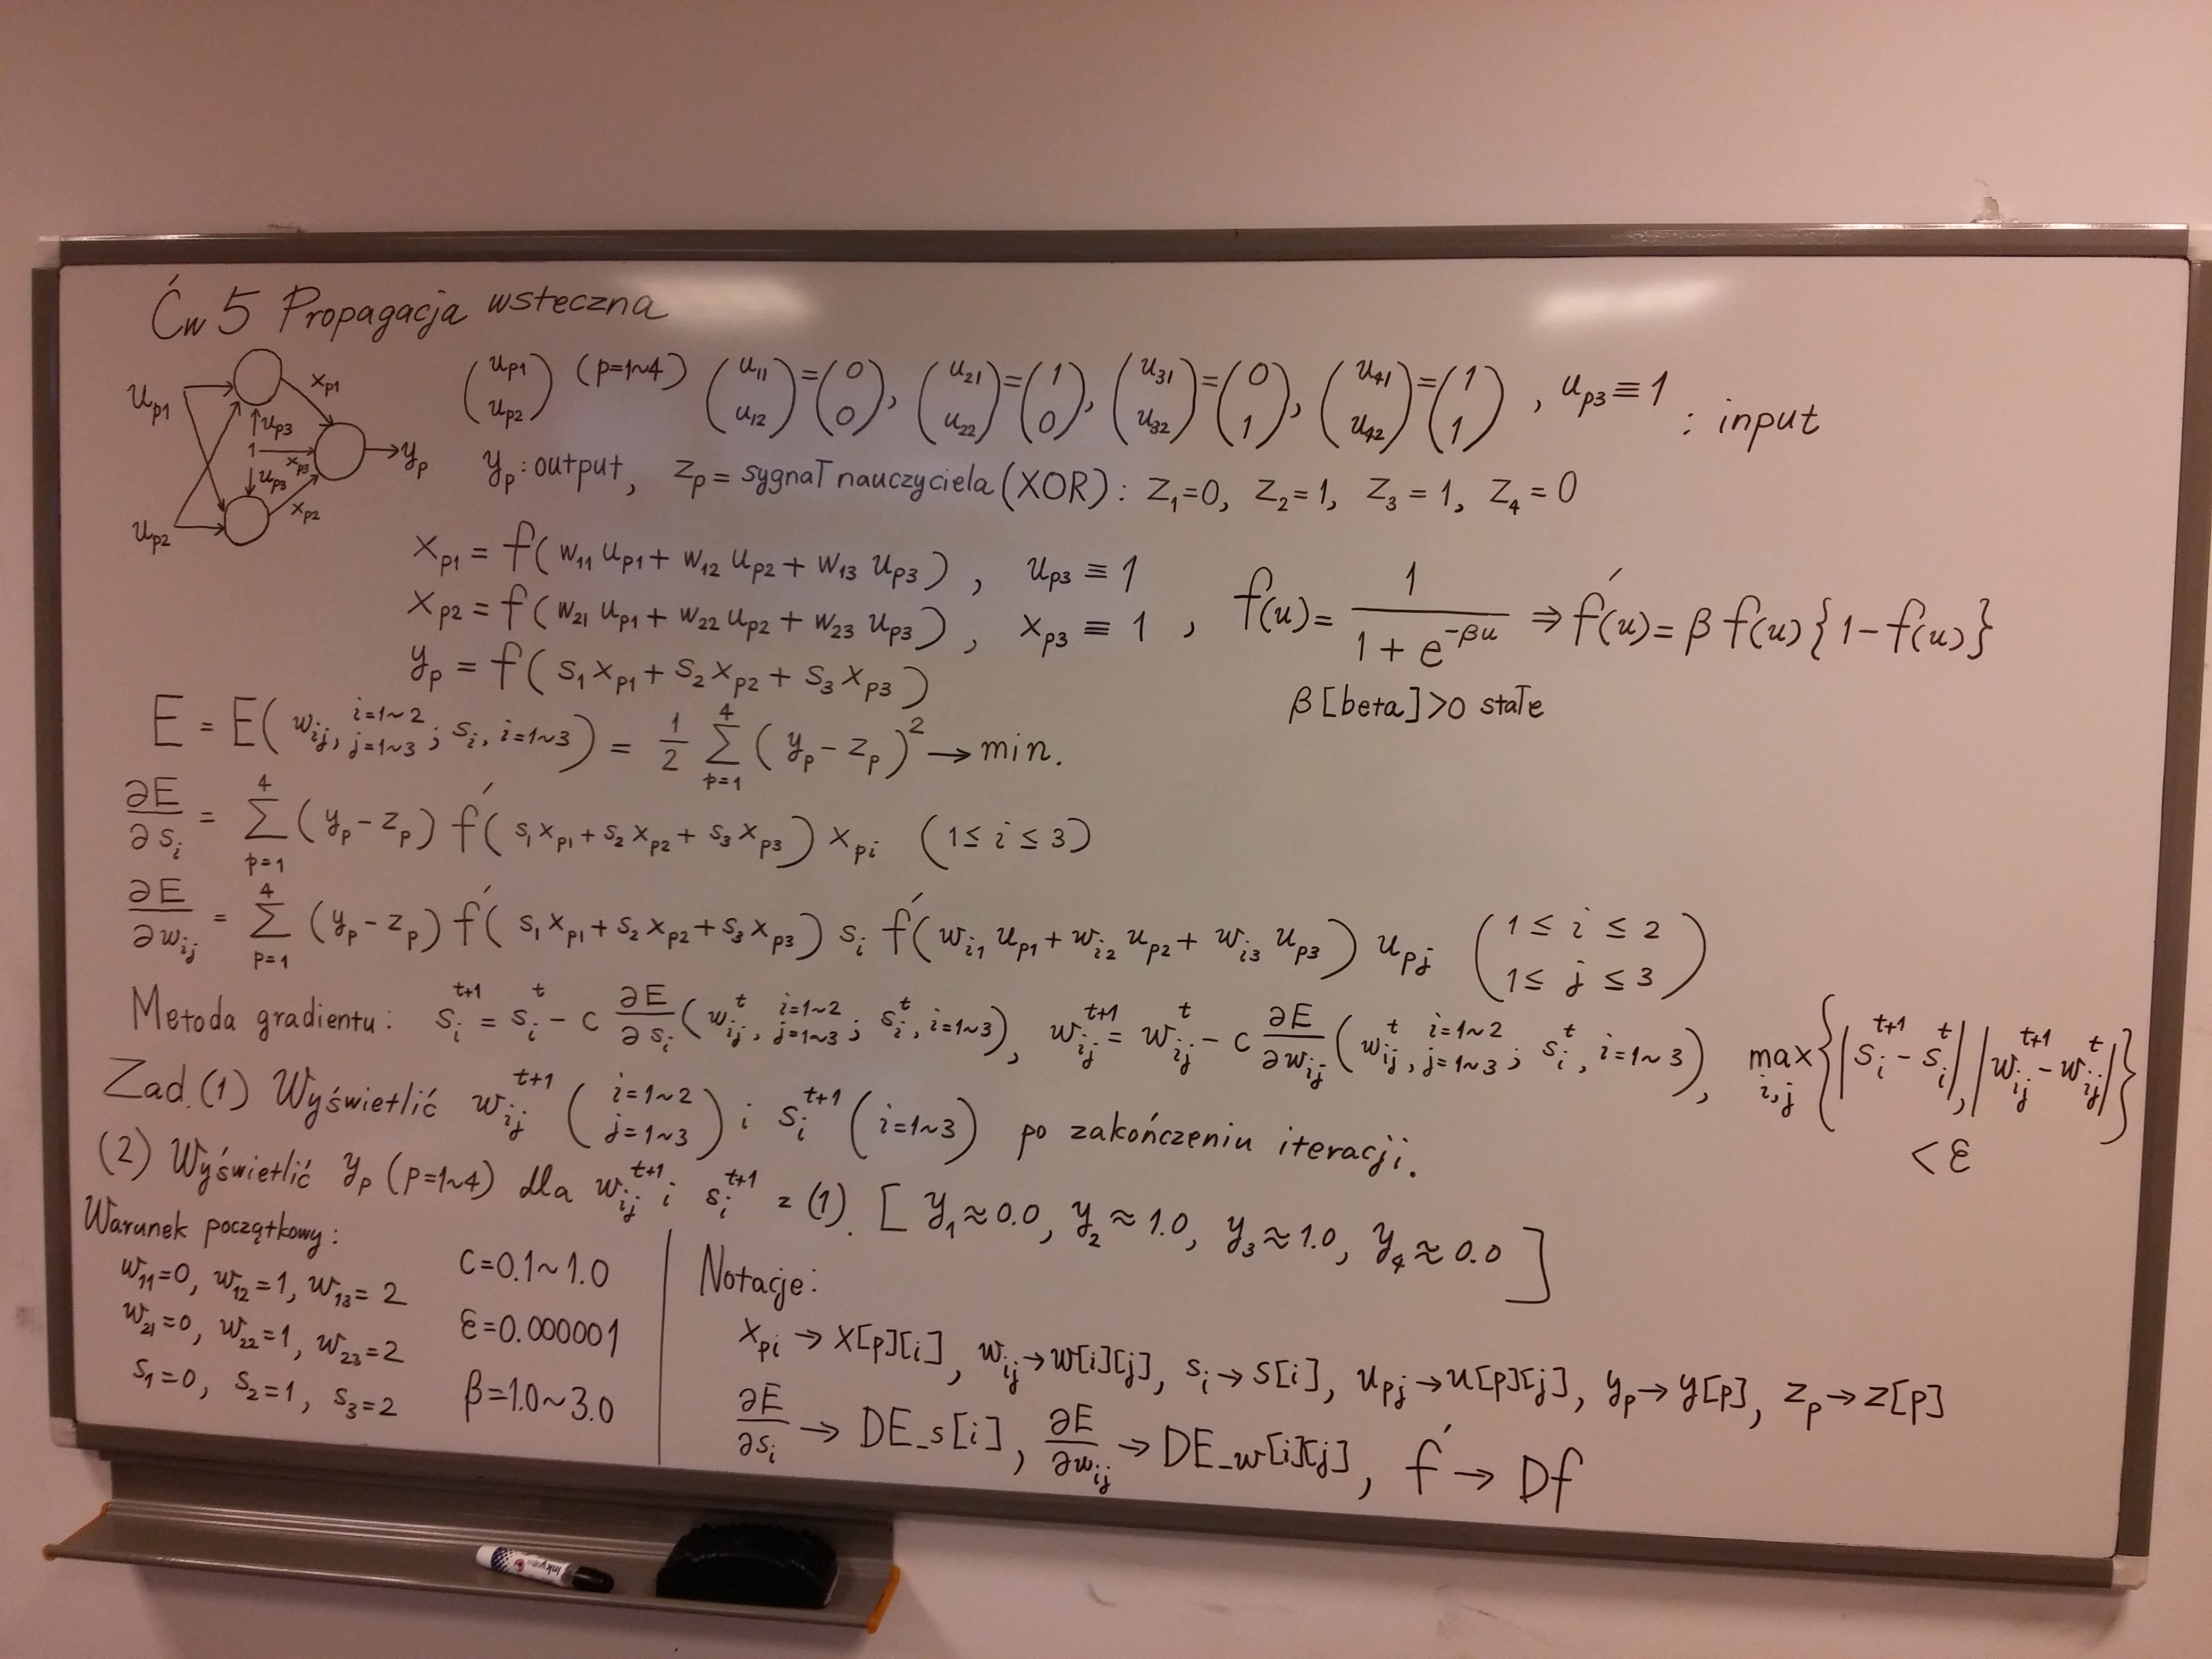 Ćw 5 Propagacja wsteczna
u_p1 x_p1 u_p3 1 x_p3 y_p u_p3 x_p2 u_p2
(u_p1 u_p2) (p=1~4) (u_11 u_12)=(0 0), (u_21 u_22)=(1 0), (u_31 u_32)=(0 1), (u_41 u_42)=(1 1), u_p3≡1 : input
y_p: output, z_p = sygnał nauczyciela (XOR): z_1=0, z_2=1, z_3=1, z_4=0
x_p1 = f(w_11 u_p1 + w_12 u_p2 + w_13 u_p3), u_p3 ≡ 1
x_p2 = f(w_21 u_p1 + w_22 u_p2 + w_23 u_p3), x_p3 ≡ 1, f(u) = 1/(1+e^{-βu}) ⇒ f´(u) = β f(u){1-f(u)}
y_p = f(s_1 x_p1 + s_2 x_p2 + s_3 x_p3)
β[beta]>0 stałe
E = E(w_ij, i=1~2 j=1~3; s_i, i=1~3) = 1/2 ∑_{p=1}^{4} (y_p - z_p)^2 → min.
∂E/∂s_i = ∑_{p=1}^{4} (y_p - z_p) f´(s_1 x_p1 + s_2 x_p2 + s_3 x_p3) x_pi (1≤ i ≤ 3)
∂E/∂w_ij = ∑_{p=1}^{4} (y_p - z_p) f´(s_1 x_p1 + s_2 x_p2 + s_3 x_p3) s_i f´(w_i1 u_p1 + w_i2 u_p2 + w_i3 u_p3) u_pj (1 ≤ i ≤ 2 1 ≤ j ≤ 3)
Metoda gradientu: s_i^{t+1} = s_i^t - c ∂E/∂s_i (w_ij^t, i=1~2 j=1~3; s_i^t, i=1~3), w_ij^{t+1} = w_ij^t - c ∂E/∂w_ij (w_ij^t, i=1~2 j=1~3; s_i^t, i=1~3), max_{i,j} {|s_i^{t+1} - s_i^t|, |w_ij^{t+1} - w_ij^t|} < ε
Zad. (1) Wyświetlić w_ij^{t+1} (i=1~2 j=1~3) i s_i^{t+1} (i=1~3) po zakończeniu iteracji.
(2) Wyświetlić y_p (p=1~4) dla w_ij^{t+1} i s_i^{t+1} z (1). [y_1≈0.0, y_2≈1.0, y_3≈1.0, y_4≈0.0]
Warunek początkowy:
w_11=0, w_12=1, w_13=2 c=0.1~1.0
w_21=0, w_22=1, w_23=2 ε=0.000001
s_1=0, s_2=1, s_3=2 β=1.0~3.0
Notacje:
x_pi → x[p][i], w_ij → w[i][j], s_i → s[i], u_pj → u[p][j], y_p → y[p], z_p → z[p]
∂E/∂s_i → DE_s[i], ∂E/∂w_ij → DE_w[i][j], f´ → Df